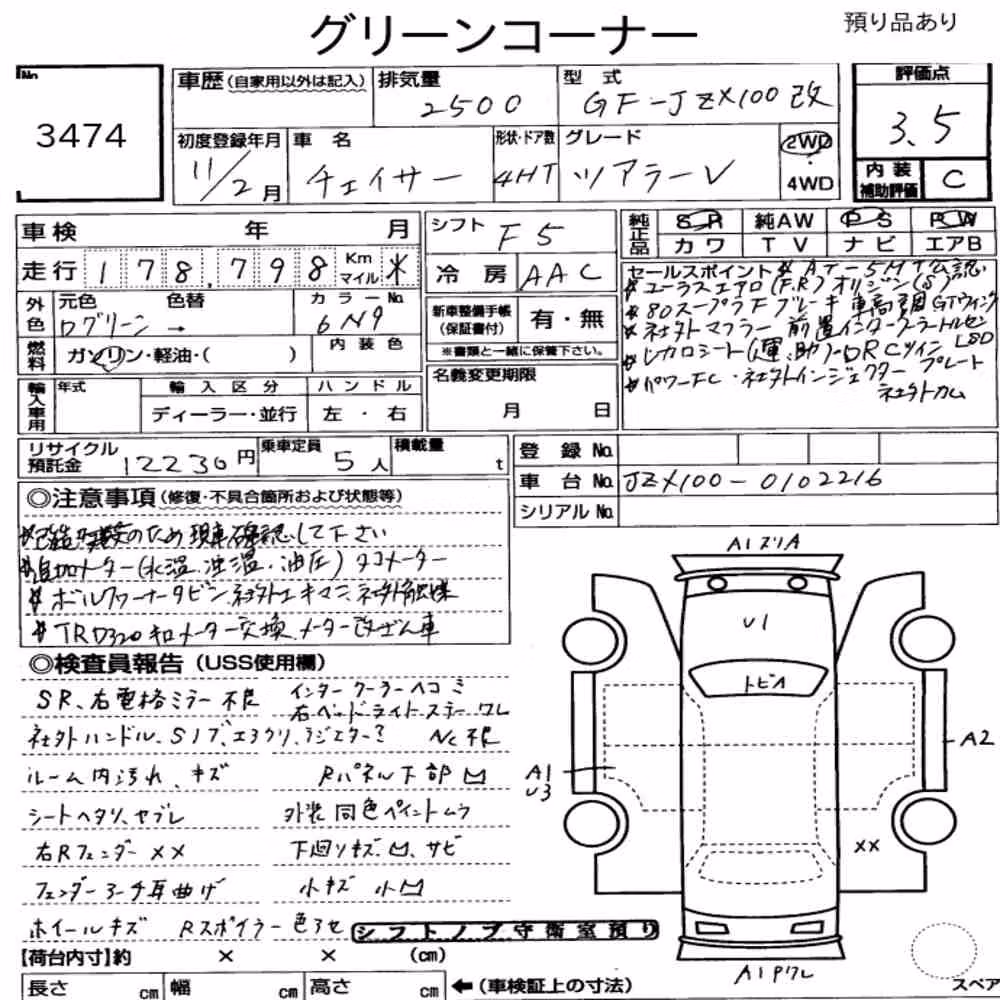 グリーンコーナー
預り品あり
No.
3474
車歴(自家用以外は記入)
排気量
2500
型 式
GF-JZX100改
評価点
3.5
内装補助評価
C
初度登録年月
11/2月
車 名
チェイサー
形状・ドア数
4HT
グレード
ツアラーV
2WD
・
4WD
車検 年 月
シフト
F5
純正品
SR 純AW PS PW
カワ TV ナビ エアB
走行 178,798 Km マイル *
冷房 AAC
外色
元色 色替
ログリーン →
カラーNo.
6N9
新車整備手帳(保証書付)
有・無
※書類と一緒に保管下さい。
燃料 ガソリン・軽油・( )
内装色
名義変更期限
月 日
輸入車用
年式
輸入区分
ハンドル
ディーラー・並行
左・右
セールスポイント * AT→5MT公認
* ユーラスエアロ(F.R) オリジン(S)
* 80スープラFブレーキ 車高調 GTウィング
* 社外マフラー 前置インタークーラー トルセンLSD
* レカロシート(運、助)・ORCツインプレート
* パワーFC・社外インジェクター 社外カム
リサイクル預託金 12230円
乗車定員 5人
積載量 t
登録No.
車台No. JZX100-0102216
シリアルNo.
◎注意事項(修復・不具合箇所および状態等)
のため現車確認して下さい
* 追加メーター(水温、油温、油圧) タコメーター
* ボルファーナータビン 社外エキマニ 社外触媒
* TRD320キロメーター交換 メーター改ざん車
◎検査員報告(USS使用欄)
SR、右電格ミラー不良
インタークーラーヘコミ
右ヘッドライトステーワレ
社外ハンドル、
Nc不良
ルーム内汚れ、キズ
Rパネル下部凹
シートヘタリ、ヤブレ
外装同色ペイントムラ
右Rフェンダー××
下廻りキズ、凹、サビ
フェンダーアーチ耳曲げ
小キズ 小凹
ホイールキズ Rスポイラー色アセ
シフトノブ守衛室預り
【荷台内寸】約 × × (cm)
長さ cm 幅 cm 高さ cm
←(車検証上の寸法)
A1スリA
U1
トビA
A1
U3
A2
××
A1Pワレ
スペア